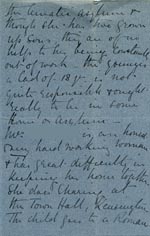 the Lunatic Asylum &
though she has two grown
up sons they are of no
help to her being constantly
out of work. The younger
a lad of 18 yrs is not
quite responsible & ought
really to be in some
Home or Asylum.
Mrs is an honest
very hard working woman
& has great difficulty in
keeping her home together
She does charing at
the Town Hall, Kensington
The child goes to a Roman